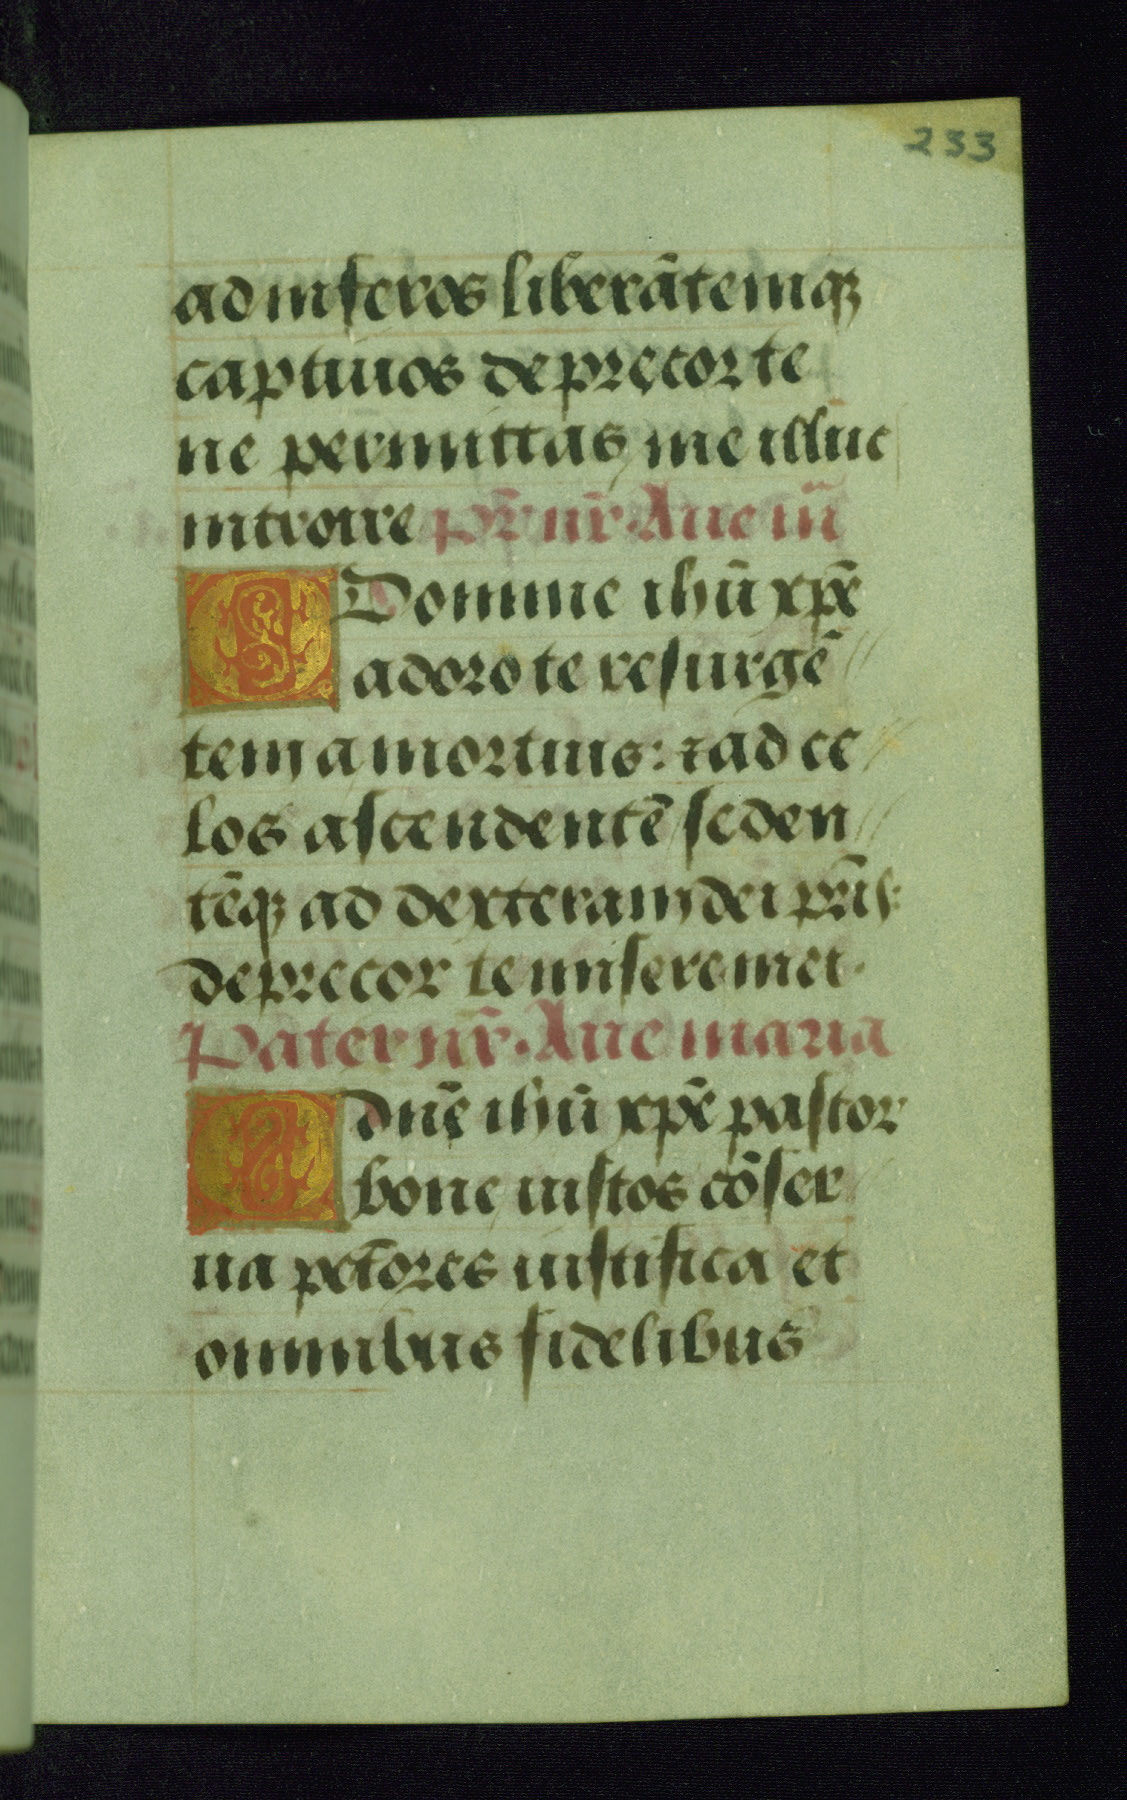 233
ad inferos liberātemqꝫ
captiuos deprecor te
ne permittas me illuc
introire pr̄ nr̄. Aue m̄
O Domine ihū xp̄e
adoro te resurgē
tem a mortuis: ⁊ ad ce
los ascendentē seden
tēqꝫ ad dexteram dei pr̄is:
deprecor te miserere mei.
Pater nr̄. Aue maria
O dn̄e ihū xp̄e pastor
bone iustos cōser
ua pctōres iustifica et
omnibus fidelibus